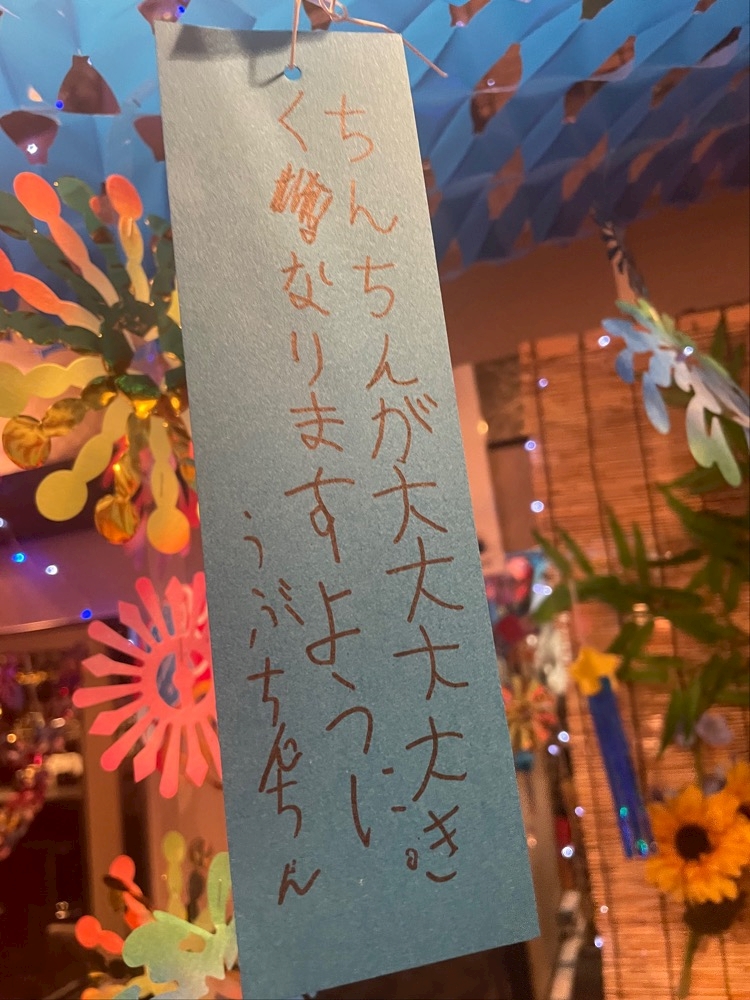 ちんちんが大大大大き
くなりますように。
うぶちんちん